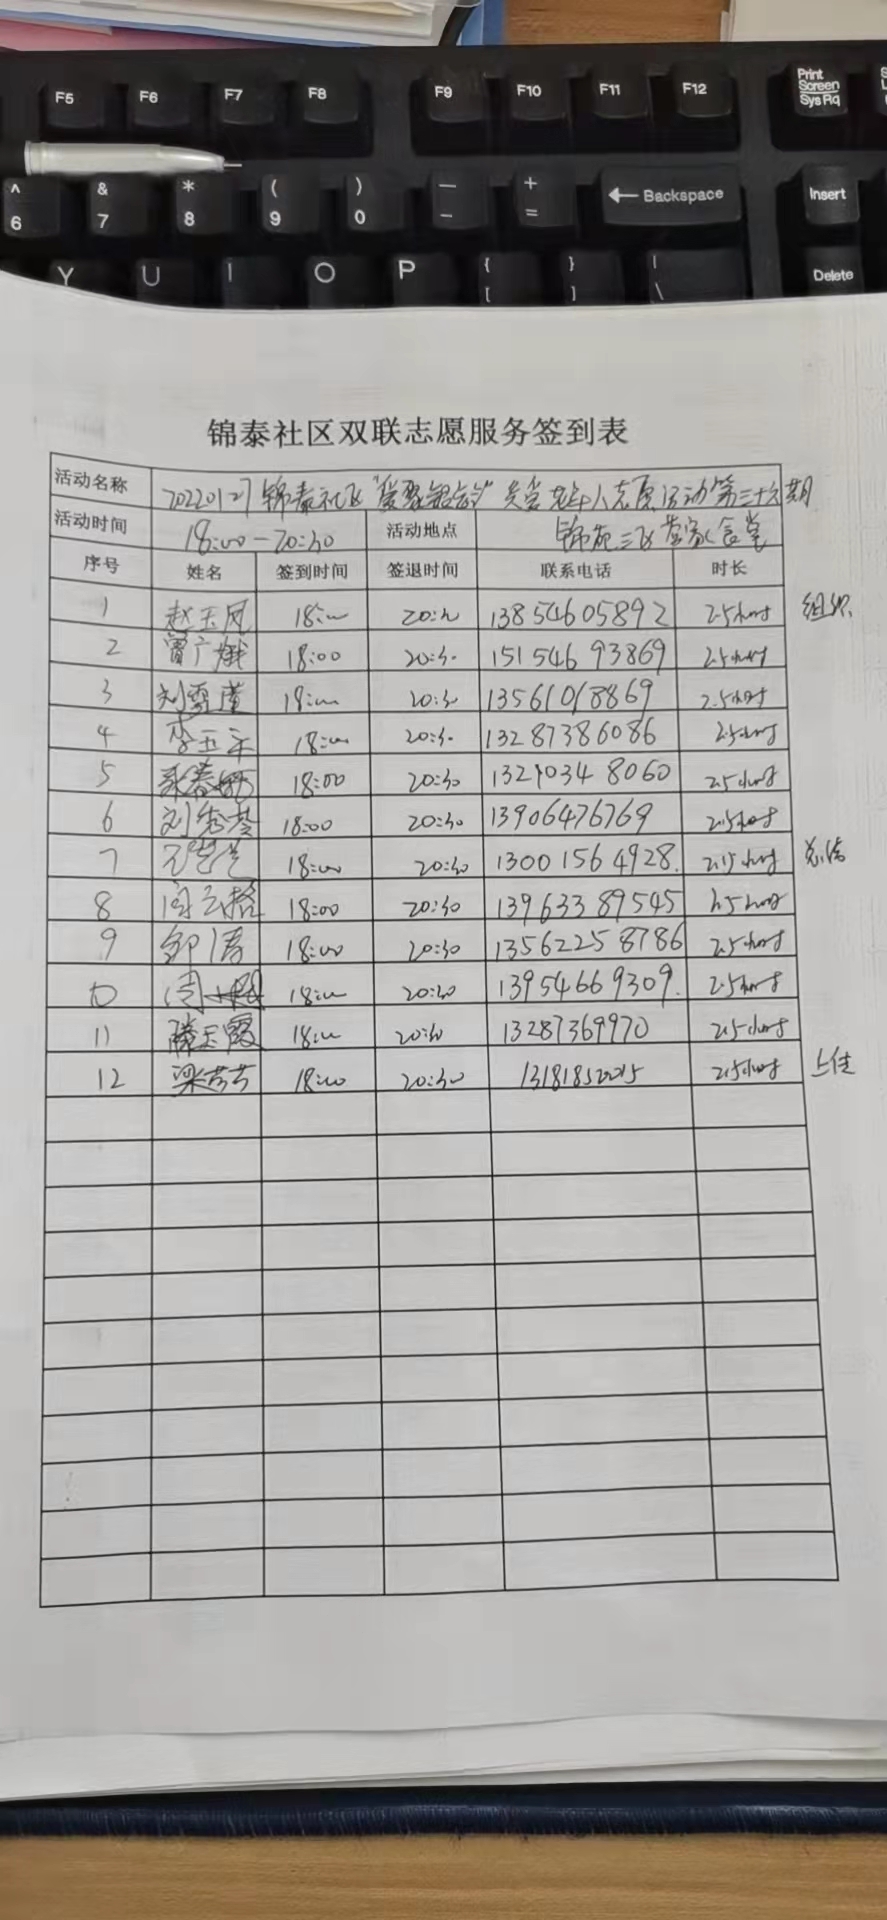 F5 F6 F7 F8 F9 F10 F11 F12 Print Screen SysRq
^ 6 & 7 * 8 ( 9 ) 0 — - + = ← Backspace Insert
Y U I O P { [ } ] | \ Delete
锦泰社区双联志愿服务签到表
活动名称 20220127锦泰社区"爱聚龄" 老年人志愿活动第三十六期
活动时间 18:00-20:30 活动地点 锦苑三区 食堂
序号 姓名 签到时间 签退时间 联系电话 时长
1 赵玉凤 18:00 20:30 13854605892 2.5hour 组织
2 广娥 18:00 20:30 15154693869 2.5hour
3 刘雪莲 18:00 20:30 13561018869 2.5hour
4 李玉 18:00 20:30 13287386086 2.5hour
5 18:00 20:30 8060 2.5hour
6 刘秀 18:00 20:30 13906476769 2.5hour
7 18:00 20:30 13001564928. 2.5hour 总结
8 18:00 20:30 13963389545 2.5hour
9 邹涛 18:00 20:30 13562258786 2.5hour
10 周 18:00 20:30 13954669309. 2.5hour
11 滕玉霞 18:00 20:30 13287369970 2.5hour
12 梁芳芳 18:00 20:30 2.5hour 上传